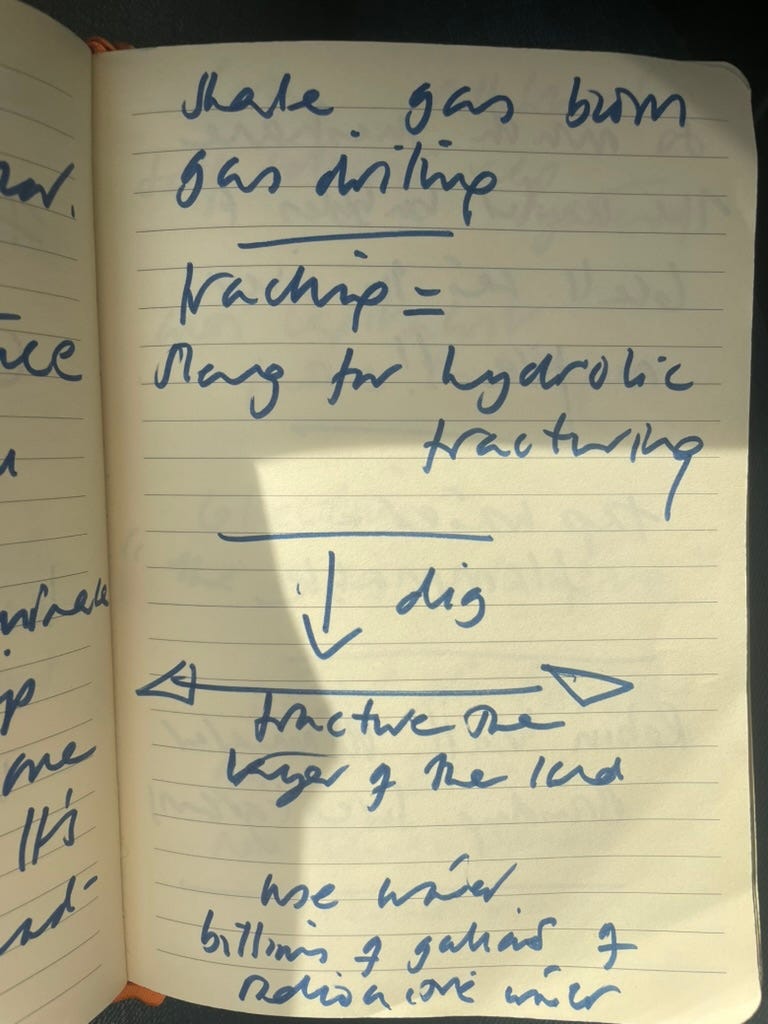 Shale gas boom
gas drilling
fracking =
slang for hydrolic
fracturing
dig
fracture the
layer of the land
use water
billions of gallons of
radioactive water
nce
one
It's
ad-